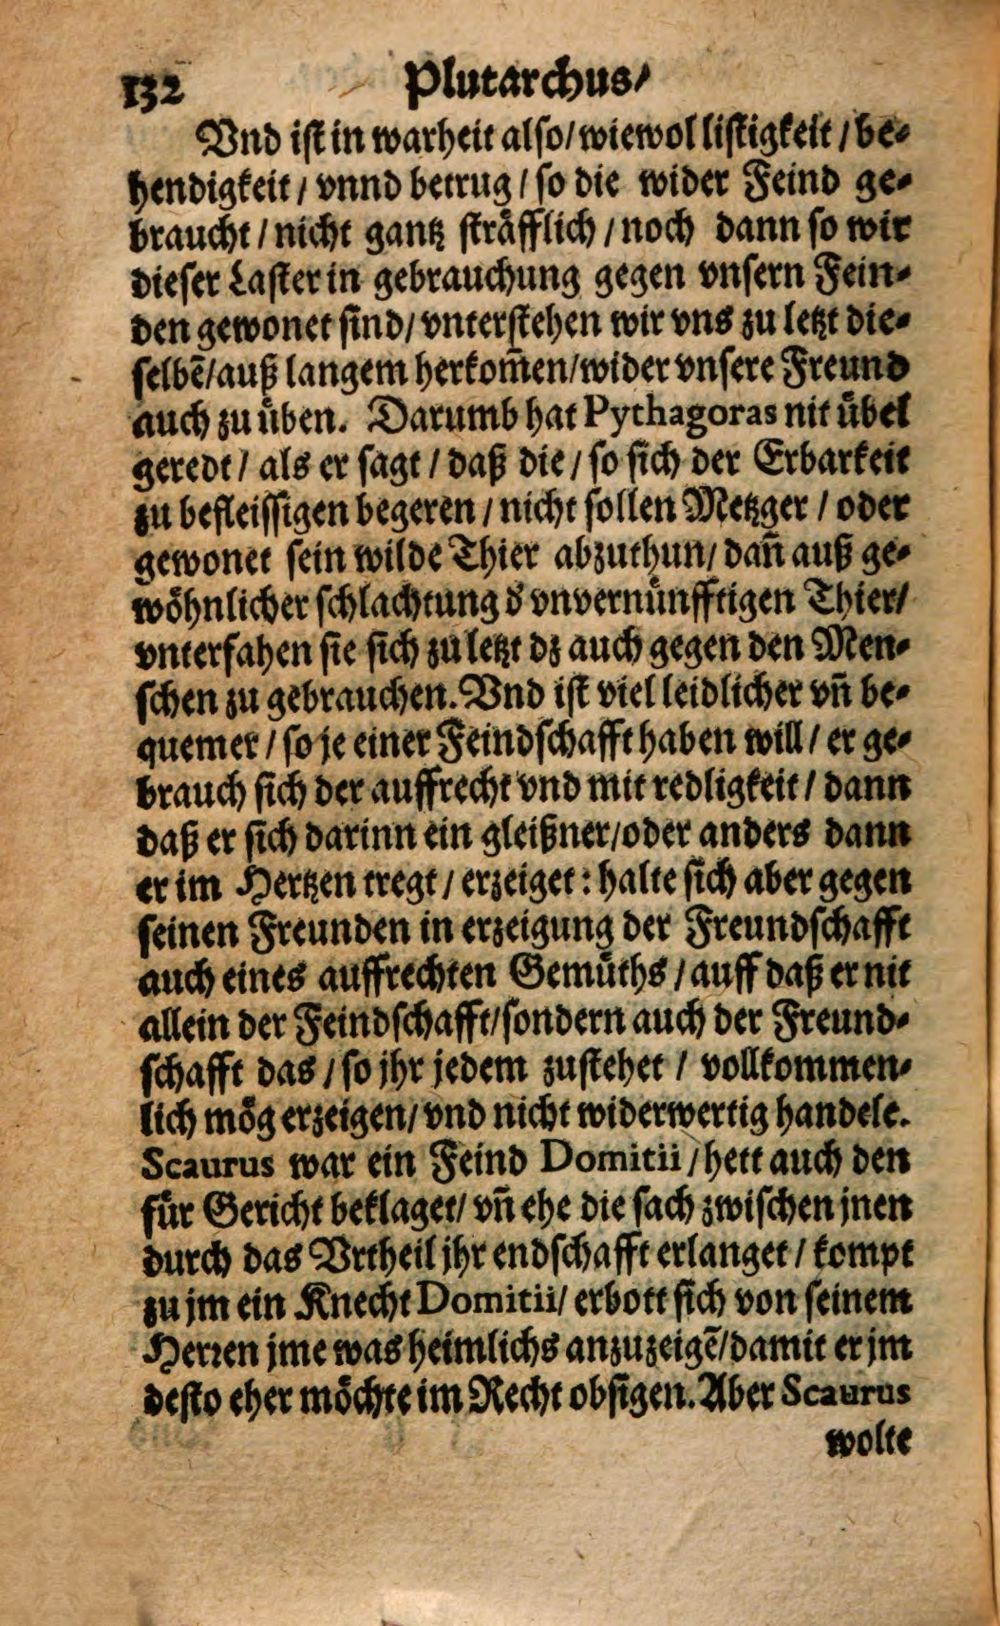 132 Plutarchus/
Vnd ist in warheit also/ wiewol listigkeit / be-
hendigkeit / vnnd betrug / so die wider Feind ge-
braucht / nicht gantz sträfflich / noch dann so wir
dieser Laster in gebrauchung gegen vnsern Fein-
den gewonet sind/ vnterstehen wir vns zu letzt die-
selbē/ auß langem herkom̄en/ wider vnsere Freund
auch zu üben. Darumb hat Pythagoras nit übel
geredt / als er sagt / daß die / so sich der Erbarkeit
zu befleissigen begeren / nicht sollen Metzger / oder
gewonet sein wilde Thier abzuthun/ dañ auß ge-
wöhnlicher schlachtung d' vnvernünfftigen Thier/
vnterfahen sie sich zu letzt dz auch gegen den Men-
schen zu gebrauchen. Vnd ist viel leidlicher vñ be-
quemer / so je einer Feindschafft haben will / er ge-
brauch sich der auffrecht vnd mit redligkeit / dann
daß er sich darinn ein gleißner/ oder anders dann
er im Hertzen tregt / erzeiget : halte sich aber gegen
seinen Freunden in erzeigung der Freundschafft
auch eines auffrechten Gemüths / auff daß er nit
allein der Feindschafft/ sondern auch der Freund-
schafft das / so jhr jedem zustehet / vollkommen-
lich mög erzeigen/ vnd nicht widerwertig handele.
Scaurus war ein Feind Domitii / hett auch den
für Gericht beklaget/ vñ ehe die sach zwischen jnen
durch das Vrtheil jhr endschafft erlanget / kompt
zu jm ein Knecht Domitii/ erbott sich von seinem
Herren jme was heimlichs anzuzeigē/ damit er jm
desto eher möchte im Recht obsigen. Aber Scaurus
wolte